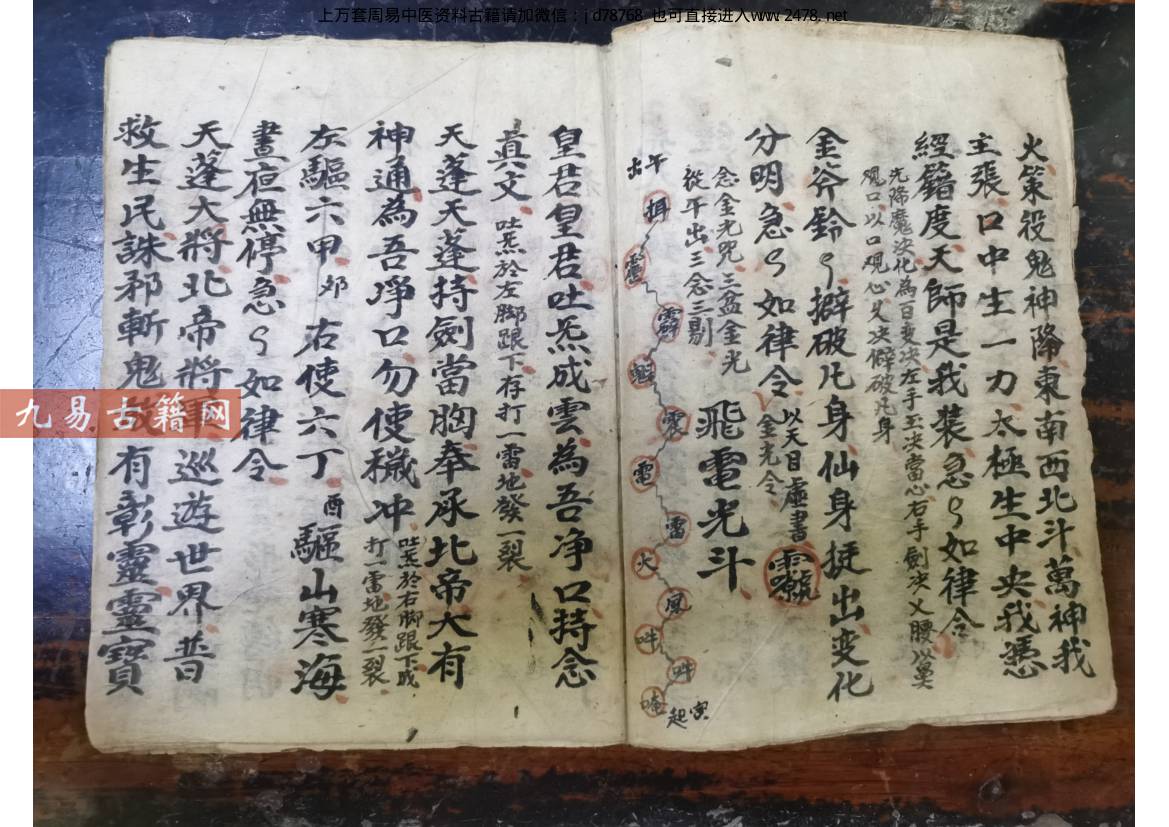 上万套周易中医资料古籍请加微信：jd78768 也可直接进入www.2478.net
火策役鬼神降東南西北斗萬神我
主張口中生一力太極生中央我憑
經籍度天師是我装急〻如律令
先降魔決化為日变决左手玉决當心右手劍决乂腰以鼻
觀口以口观心乂决僻破凡身
金斧鈴〻擗破凡身仙身挺出变化
分明急〻如律令
以天目虛書
金光令
念金光咒三盆金光
從午出三念三剔
飛電光斗
午
出
靈
霹
電
雷
火
風
吽
吽
唵
起
皇君皇君吐炁成雲為吾净口持念
真文
吐炁於左脚跟下存打一雷地發一裂
天蓬天蓬持劍當胸奉承北帝大有
神通為吾净口勿使穢冲
吐炁於右脚跟下成
打一雷地發一裂
左驅六甲
卯
右使六丁
酉
驅山寒海
晝夜無停急〻如律令
天蓬大將北帝將軍巡遊世界普
救生民誅邪斬鬼 有彰靈靈寶
九易古籍网